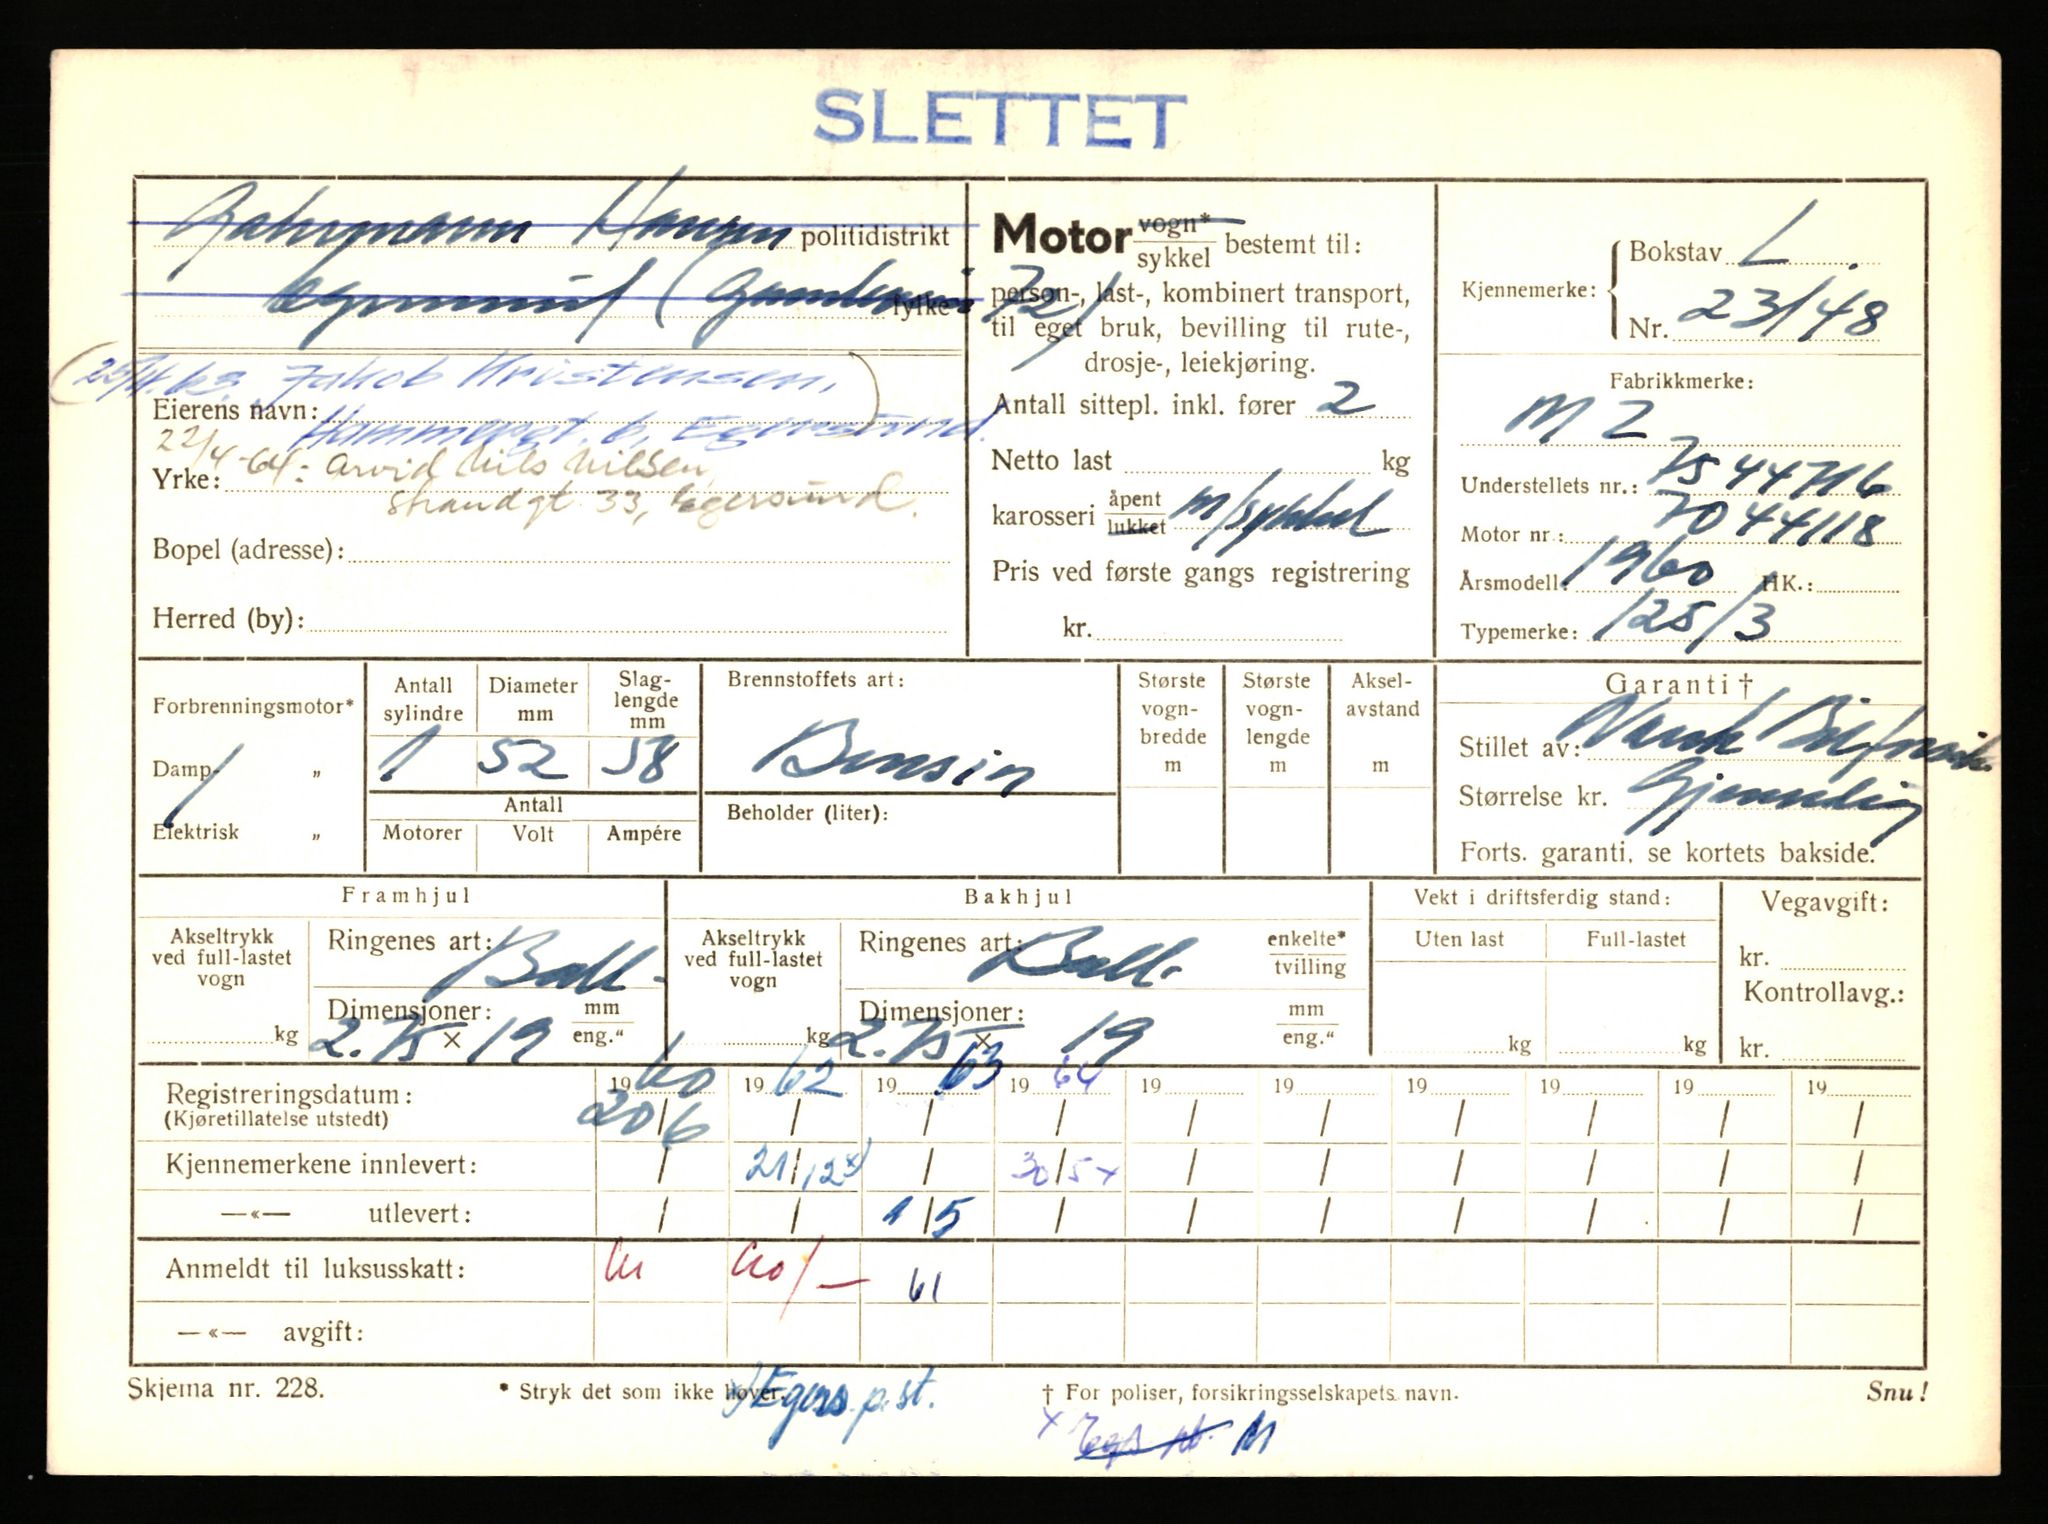 SLETTET
Hansen politidistrikt
fylke
25/4.63. Jakob Kristensen,
Eierens navn:
Hammergt. 6, Egersund.
22/4-64: Arvid Nils Nilsen,
Yrke:
Strandgt 33, Egersund.
Bopel (adresse):
Herred (by):
Motor vogn* sykkel bestemt til:
person-, last-, kombinert transport,
til eget bruk, bevilling til rute-,
drosje-, leiekjøring.
Antall sittepl. inkl. fører 2
Netto last kg
karosseri åpent lukket m/sykkel
Pris ved første gangs registrering
kr.
Kjennemerke: Bokstav L.
Nr. 23148
Fabrikkmerke:
MZ
Understellets nr.: 7544716
Motor nr.: 7044118
Årsmodell: 1960 HK.:
Typemerke: 125/3
Forbrenningsmotor*
Damp- „
Elektrisk „
Antall sylindre
Diameter mm
Slag-lengde mm
1 52 58
Antall
Motorer Volt Ampére
Brennstoffets art:
Bensin
Beholder (liter):
Største vogn-bredde m
Største vogn-lengde m
Aksel-avstand m
Garanti †
Stillet av: Norsk
Størrelse kr. Gjensidig
Forts. garanti, se kortets bakside.
Framhjul
Akseltrykk ved full-lastet vogn
kg
Ringenes art: Ball-
Dimensjoner: mm eng.“
2.75 x 19
Bakhjul
Akseltrykk ved full-lastet vogn
kg
Ringenes art: Ball- enkelte* tvilling
Dimensjoner: mm eng.“
2.75 x 19
Vekt i driftsferdig stand:
Uten last Full-lastet
kg kg
Vegavgift:
kr.
Kontrollavg.:
kr.
Registreringsdatum: 1960 1962 1963 1964 19 19 19 19 19 19
(Kjøretillatelse utstedt) 20/6 / / / / / / / / /
Kjennemerkene innlevert: / 21/12x) / 30/5x / / / / / /
—«— utlevert: / / 1/5 / / / / / / /
Anmeldt til luksusskatt: 61
—«— avgift:
Skjema nr. 228.
* Stryk det som ikke høver.
x) Egers. p.st.
† For poliser, forsikringsselskapets navn.
Snu!
x M